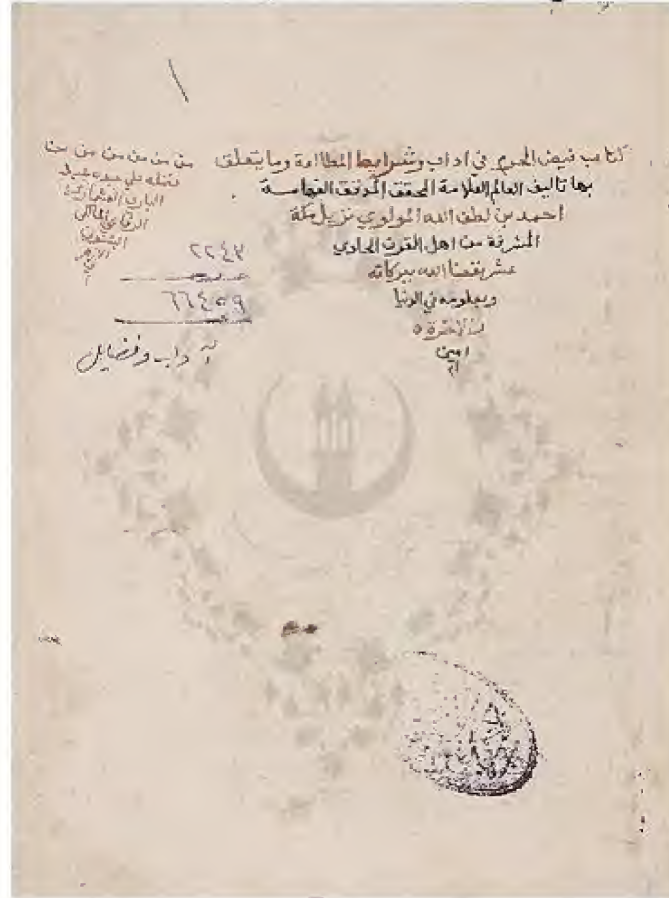 كتاب فيض الحرم في اداب وشرايط المطالعة وما يتعلق
بها تاليف العالم العلامة المحقق المدقق الفهامة
احمد بن لطف الله المولوي نزيل مكة
المشرفة من اهل القرن الحادي
عشر نفعنا الله ببركاته
وبعلومه في الدنيا
والاخرة
امين
من من من من من
الباري العشماوي
الرفاعي المالكي
٢٢٤٣
٦٦٤٥٩
اداب وفضايل